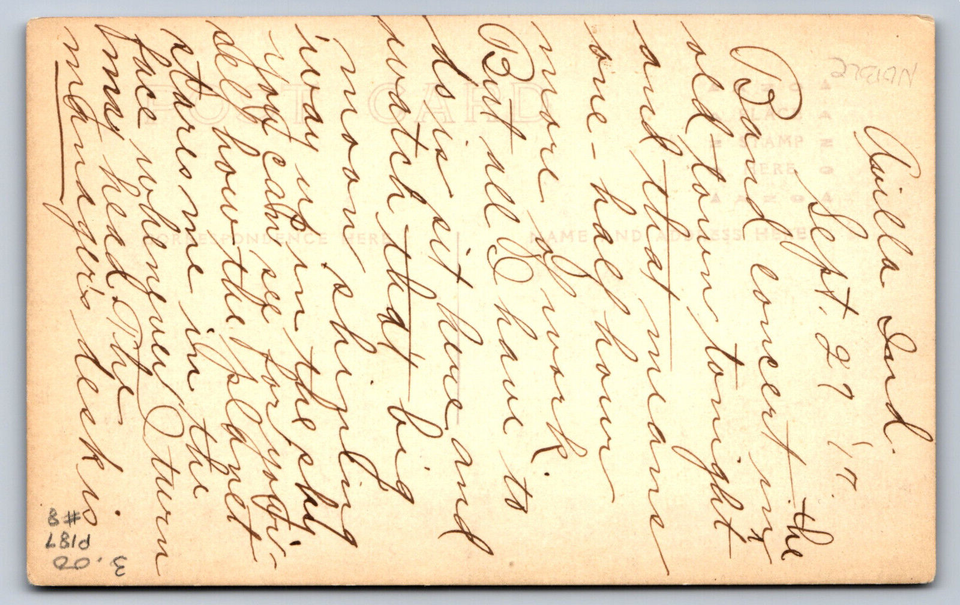 Avilla Ind.
Sept. 27 '17.
Band concert in the
old town tonight
and that means
one-half hour
more work.
But all I have to
do is sit here and
watch that big
moon shining
way up in the sky
You can see for your-
self how the planet
stares me in the
face whenever I turn
my head. The
manager's desk is
POST CARD
PLACE
STAMP
HERE
CORRESPONDENCE HERE
NAME AND ADDRESS HERE
NOBLE
3.00
P187
#8